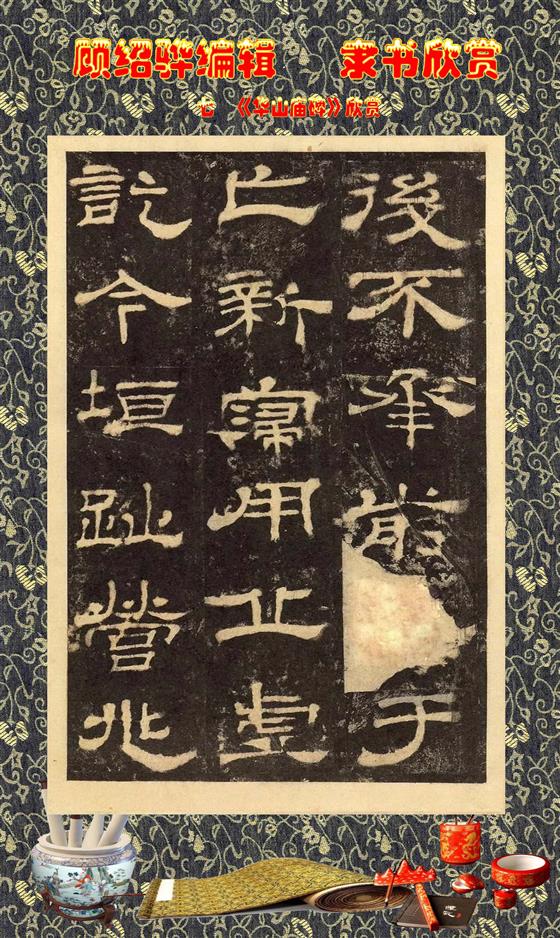 顾绍骅编辑 隶书欣赏
心 《华山庙碑》欣赏
後不承前于
亡新寖用丘虚
訖今垣趾營兆